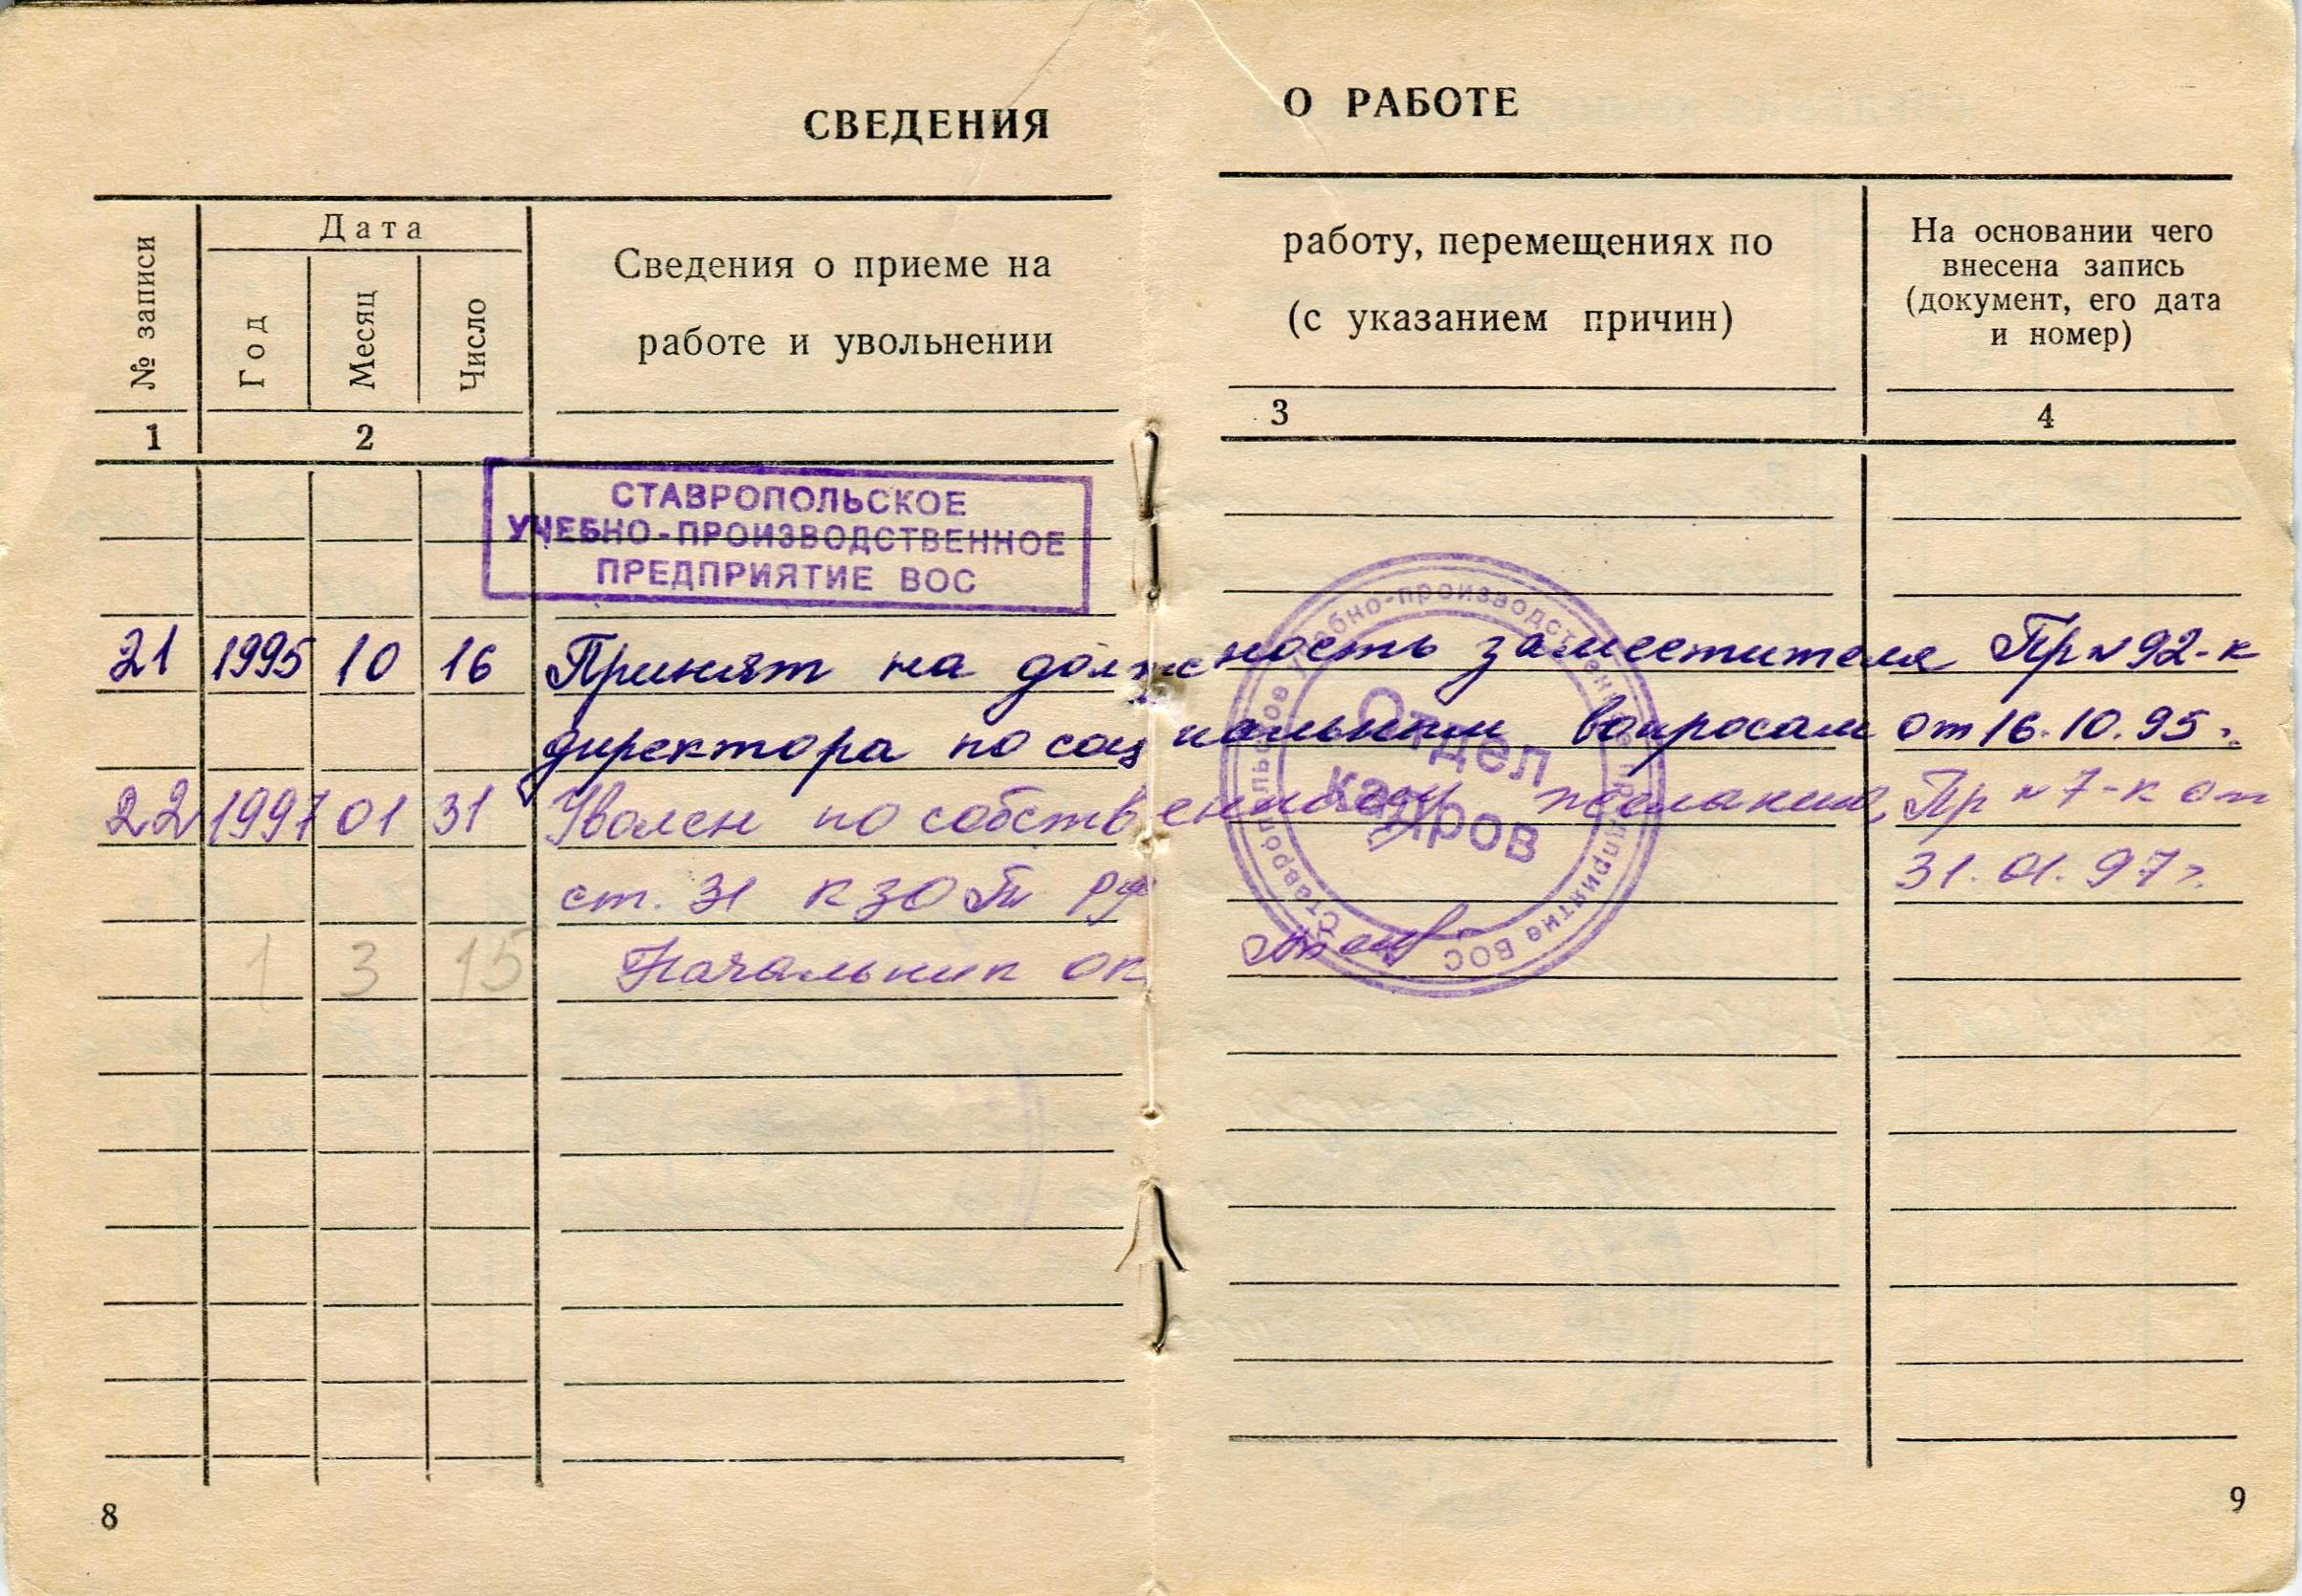 СВЕДЕНИЯ О РАБОТЕ
№ записи
Дата
Год
Месяц
Число
Сведения о приеме на работу, перемещениях по
работе и увольнении (с указанием причин)
На основании чего
внесена запись
(документ, его дата
и номер)
1 2 3 4
СТАВРОПОЛЬСКОЕ
УЧЕБНО-ПРОИЗВОДСТВЕННОЕ
ПРЕДПРИЯТИЕ ВОС
21 1995 10 16 Принят на должность заместителя Пр № 92-к
директора по социальным вопросам от 16.10.95г.
22 1997 01 31 Уволен по собственному желанию, Пр № 7-к от
ст. 31 КЗОТ РФ 31.01.97г.
1 3 15 Начальник ОК
Ставропольское учебно-производственное предприятие ВОС
Отдел
кадров
8
9